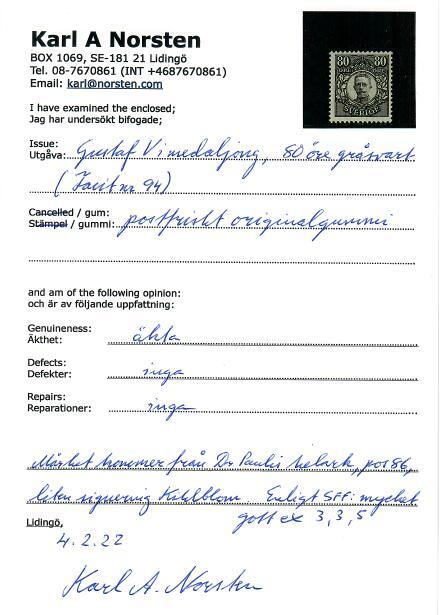 Karl A Norsten
BOX 1069, SE-181 21 Lidingö
Tel. 08-7670861 (INT +4687670861)
Email: karl@norsten.com
80 80
ÖRE ÖRE
SVERIGE
I have examined the enclosed;
Jag har undersökt bifogade;
Issue:
Utgåva: Gustaf V i medaljong, 80 öre gråsvart
(Facit nr 94)
Cancelled / gum:
Stämpel / gummi: postfriskt originalgummi
and am of the following opinion:
och är av följande uppfattning:
Genuineness:
Äkthet: äkta
Defects:
Defekter: inga
Repairs:
Reparationer: inga
Märket kommer från Dr Paulis helark, pos 86,
liten signering Enligt SFF: mycket
gott ex 3, 3, 5
Lidingö,
4.2.22
Karl A. Norsten